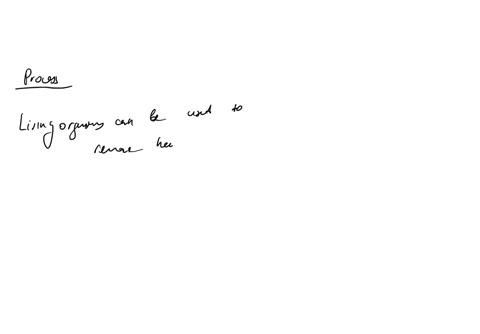 Process
Living organisms can be used to
remove hea